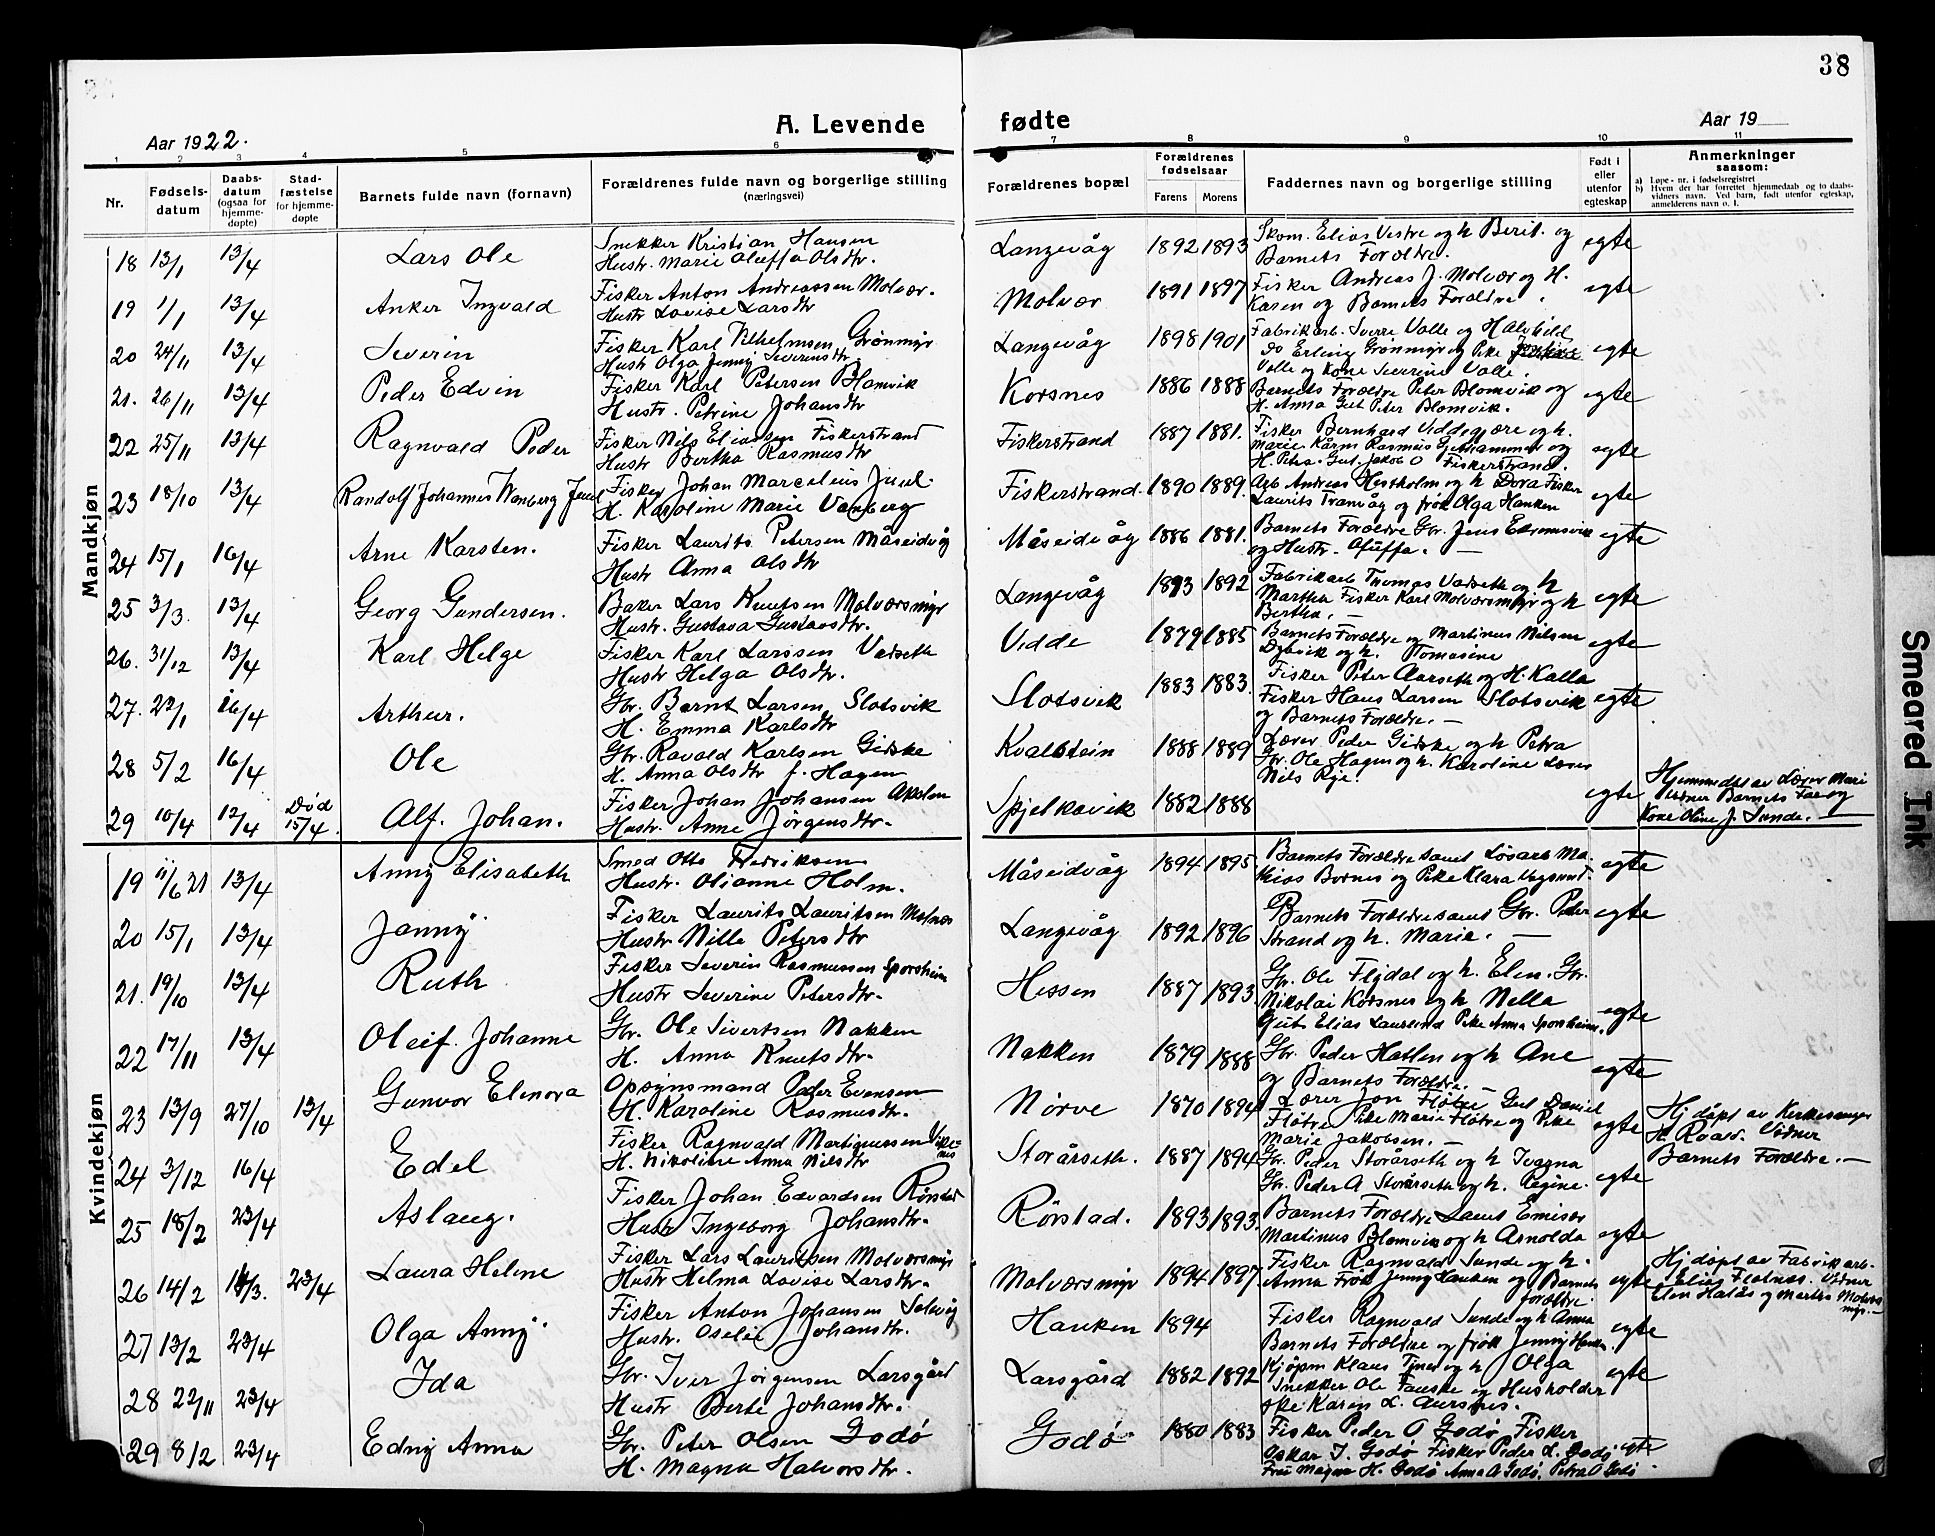 38
Aar 1922.
A. Levende fødte
Aar 19
1 2 3 4 5 6 7 8 9 10 11
Nr. Fødsels-datum Daabs-datum (ogsaa for hjemme-døpte) Stad-fæstelse for hjemme-døpte Barnets fulde navn (fornavn) Forældrenes fulde navn og borgerlige stilling (næringsvei) Forældrenes bopæl Forældrenes fødselsaar Farens Morens Faddernes navn og borgerlige stilling Født i eller utenfor egteskap Anmerkninger saasom:
a) Løpe-nr. i fødselsregistret
b) Hvem der har forrettet hjemmedaab og to daabs-vidners navn. Ved barn, født utenfor egteskap, anmelderens navn o. l.
Mandkjøn
18 13/1 13/4 Lars Ole Snekker Kristian Hansen Langevåg 1892 1893 Skom. Elias Vestre og h Berit. og egte
Hustr. Marie Oluffa Olsdtr. Barnets Forældre.
19 1/1 13/4 Anker Ingvald Fisker Anton Andreassen Molvær. Molvær 1891 1897 Fisker Andreas J. Molvær og H. egte
Hustr Lovise Larsdtr Karen og Barnets Forældre.
20 24/11 13/4 Severin Fisker Karl Vilhelmsen Grønmyr Langevåg 1898 1901 Fabrikarb. Sverre Valle og egte
Hustr Olga Jenny Severinsdtr. Do Erling Grønmyr og Pike
Valle og Kone Severine Valle.
21. 26/11 13/4 Peder Edvin Fisker Karl Petersen Blomvik Korsnes 1886 1888 Barnets Forældre Peter Blomvik og egte
Hustr. Petrine Johansdtr H. Anna Gut Peter Blomvik.
22 25/11 13/4 Ragnvald Peder Fisker Nils Eliassen Fiskerstrand Fiskerstrand 1887 1881. Fisker Bernhard Viddegjære og h. egte
Hustr Bertha Rasmusdtr Marie Rasmus og
H. Petra. Gut. Jakob O Fiskerstrand.
23 18/10 13/4 Randolf Johannes Wanberg Juul Fisker Johan Marcelius Juul. Fiskerstrand. 1890 1889. Arb Andreas Hestholm og h Dora Fisker egte
H. Karoline Marie Vanberg Laurits Tranvåg og frøk Olga Hanken
24 15/1 16/4 Arne Karsten. Fisker Laurits Petersen Måseidvåg Måseidvåg 1886 1881. Barnets Forældre Gbr. Jens egte
Hustr Anna Olsdtr og Hustr. Oluffa.
25 3/3. 13/4 Georg Gundersen. Baker Lars Knutsen Molværsmyr Langevåg 1893 1892 Fabrikarb Thomas Vadseth og h egte
Hustr. Gustava Gustavsdtr. Martha Fisker Karl Molværsmyr og h
Bertha.
26. 31/12 13/4 Karl Helge Fisker Karl Larssen Vadseth Vidde 1879 1885 Barnets Forældre og Martinus Nilsen egte
Hustr Helga Olsdtr. Dybvik og h. Tomasine
27. 22/1 16/4 Arthur. Gbr. Bernt Larsen Slotsvik Slotsvik 1883 1883. Fisker Peter Aarseth og H. Kalla egte
H. Emma Karlsdtr Fisker Hans Larsen Slotsvik
og Barnets Forældre.
28 5/2 16/4 Ole Gbr. Ravald Karlsen Giske Kvalstein 1888 1889 Lærer Peder Giske og h Petra
H. Anna Olsdtr f. Hagen Gbr. Ole Hagen og h. Karoline
Nils Rye.
29 10/4 12/4 Død 15/4. Alf. Johan. Fisker Johan Johansen Spjelkavik 1882 1888 egte Hjemmedøpt av Lærer
Hustr. Anne Jørgensdtr. Vidner Barnets Far og
Kone Oline J. Sunde.
Kvindekjøn
19 11/6 21 13/4 Anny Elisabeth Smed Otto Fredriksen Måseidvåg 1894 1895 Barnets Forældre samt Løsarb egte
Hustr. Olianne Holm. og Pike Klara
20 15/1 13/4 Janny Fisker Laurits Lauritsen Molnes Langevåg 1892 1896 Barnets Forældre samt Gbr. Peder egte
Hustr Nille Petersdtr Strand og h. Marie.
21. 19/10 13/4 Ruth Fisker Severin Rasmussen Sporsheim Hessen 1887 1893 Gbr. Ole Flydal og h. Elen. Gbr. egte
Hustr Severine Petersdtr. Nikolai Korsnes og h Nella
Gut Elias Pike Anna Sporsheim.
22 17/11 13/4 Oleif. Johanne Gbr. Ole Sivertsen Nakken Nakken 1879 1888 Gbr. Peder Hatlen og h Ane egte
H. Anna Knutsdtr. og Barnets Forældre.
23 13/9 27/10 13/4 Gunvor Elenora Opsynsmand Peder Evensen Nørve 1870 1894 Lærer Jon Fløtre Gut Daniel egte Hj døpt av Kirkesanger
H. Karoline Rasmusdtr. Fløtre Pike Marie Fløtre og Pike H. Roald. Vidner
Marie Jakobsen. Barnets Forældre.
24 3/12 16/4 Edel Fisker Ragnvald Martinussen Storårseth. 1887 1894 Gbr. Peder Storårseth og h Ivarna egte
H. Nikoline Anna Nilsdtr Gbr. Peder A Storårseth og h. Regine.
25 18/2 23/4 Aslaug. Fisker Johan Edvardsen Rørstad Rørstad. 1893 1893. Barnets Forældre samt Emisær egte
Hustr Ingeborg Johansdtr. Martinus Blomvik og h Arnolda
26 14/2 14/3. 23/4 Laura Helene Fisker Lars Lauritsen Molværsmyr Molværsmyr 1894 1897 Fisker Ragnvald Sunde og h. egte Hj døpt av Fabrikarb.
Hustr Helma Lovise Larsdtr. Anna Frøk Jenny Hanken og Barnets Elias Flatnes. Vidner
forældre. Elen Halås og Marthe Molværsmyr.
27 13/2 23/4 Olga Anny Fisker Anton Johansen Solvåg Hanken 1894 Fisker Ragnvald Sunde og h Anna egte
Hustr. Oselie Johansdtr. Barnets Forældre og frøk Jenny Hanken.
28 22/11 23/4 Ida Gbr. Iver Jørgensen Larsgård Larsgård 1882 1892 Kjøpm Klaus Tynes og h Olga egte
Hustr Berte Johansdtr. Snekker Ole Fauske og Husholder
ske. Karen L. Aursnes.
29 8/2 23/4 Edny Anna Gbr. Peter Olsen Godø Godø 1880 1883 Fisker Peder O Godø Fisker egte
H. Magna Halvorsdtr. Oskar J. Godø Fisker Peder L. Godø
Fru Magna H. Godø Anna A Godø, Petra O Godø
Smeared Ink